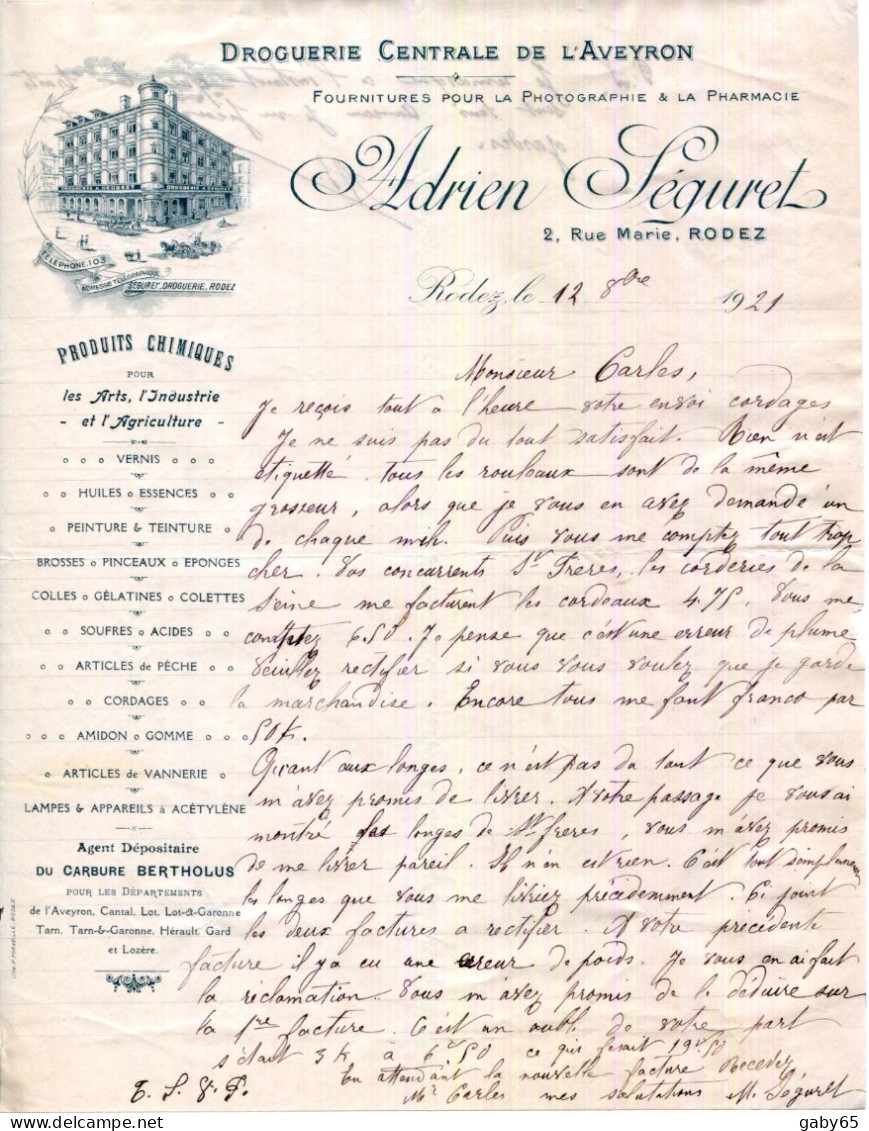 DROGUERIE CENTRALE DE L'AVEYRON
FOURNITURES POUR LA PHOTOGRAPHIE & LA PHARMACIE
Adrien Séguret
2, RUE MARIE, RODEZ
TÉLÉPHONE.103
ADRESSE TÉLÉGRAPHIQUE
SÉGURET_DROGUERIE_RODEZ
Rodez, le 12 8bre 1921
PRODUITS CHIMIQUES
POUR
les Arts, l'Industrie
- et l'Agriculture -
VERNIS
HUILES o ESSENCES
PEINTURE & TEINTURE
BROSSES o PINCEAUX o EPONGES
COLLES o GÉLATINES o COLETTES
SOUFRES o ACIDES
ARTICLES de PÊCHE
CORDAGES
AMIDON o GOMME
ARTICLES de VANNERIE
LAMPES & APPAREILS à ACÉTYLÈNE
Agent Dépositaire
DU CARBURE BERTHOLUS
POUR LES DÉPARTEMENTS
de l'Aveyron, Cantal, Lot, Lot-&-Garonne
Tarn, Tarn-&-Garonne, Hérault, Gard
et Lozère.
Monsieur Carles,
Je reçois tout à l'heure votre envoi cordages
Je ne suis pas du tout satisfait. Rien n'est
étiquetté tous les rouleaux sont de la même
grosseur, alors que je vous en avez demandé un
de chaque mih. Puis vous me comptez tout trop
cher. Vos concurrents St Freres, les corderies de la
Seine me facturent les cordeaux 4.75. Vous me
comptez 6.50. Je pense que c'est une erreur de plume
Veuillez rectifier si vous vous voulez que je garde
la marchandise. Encore tous me font franco par
50 k.
Quant aux longes, ce n'est pas du tout ce que vous
m'avez promis de livrer. A votre passage je vous ai
montré les longes de St freres, vous m'avez promis
de me livrer pareil. Il n'en est rien. C'est tout simplement
les longes que vous me livriez précédemment. Ci joint
les deux factures a rectifier. A votre précédente
facture il y a eu une erreur de poids. Je vous en ai fait
la réclamation. Vous m'avez promis de le déduire sur
la 1re facture. C'est un oubli de votre part
s'étant 3 k à 6f50 ce qui ferait 19f50
En attendant la nouvelle facture Recevez
Mr Carles mes salutations M. Séguret
T. S. V. P.
gaby65